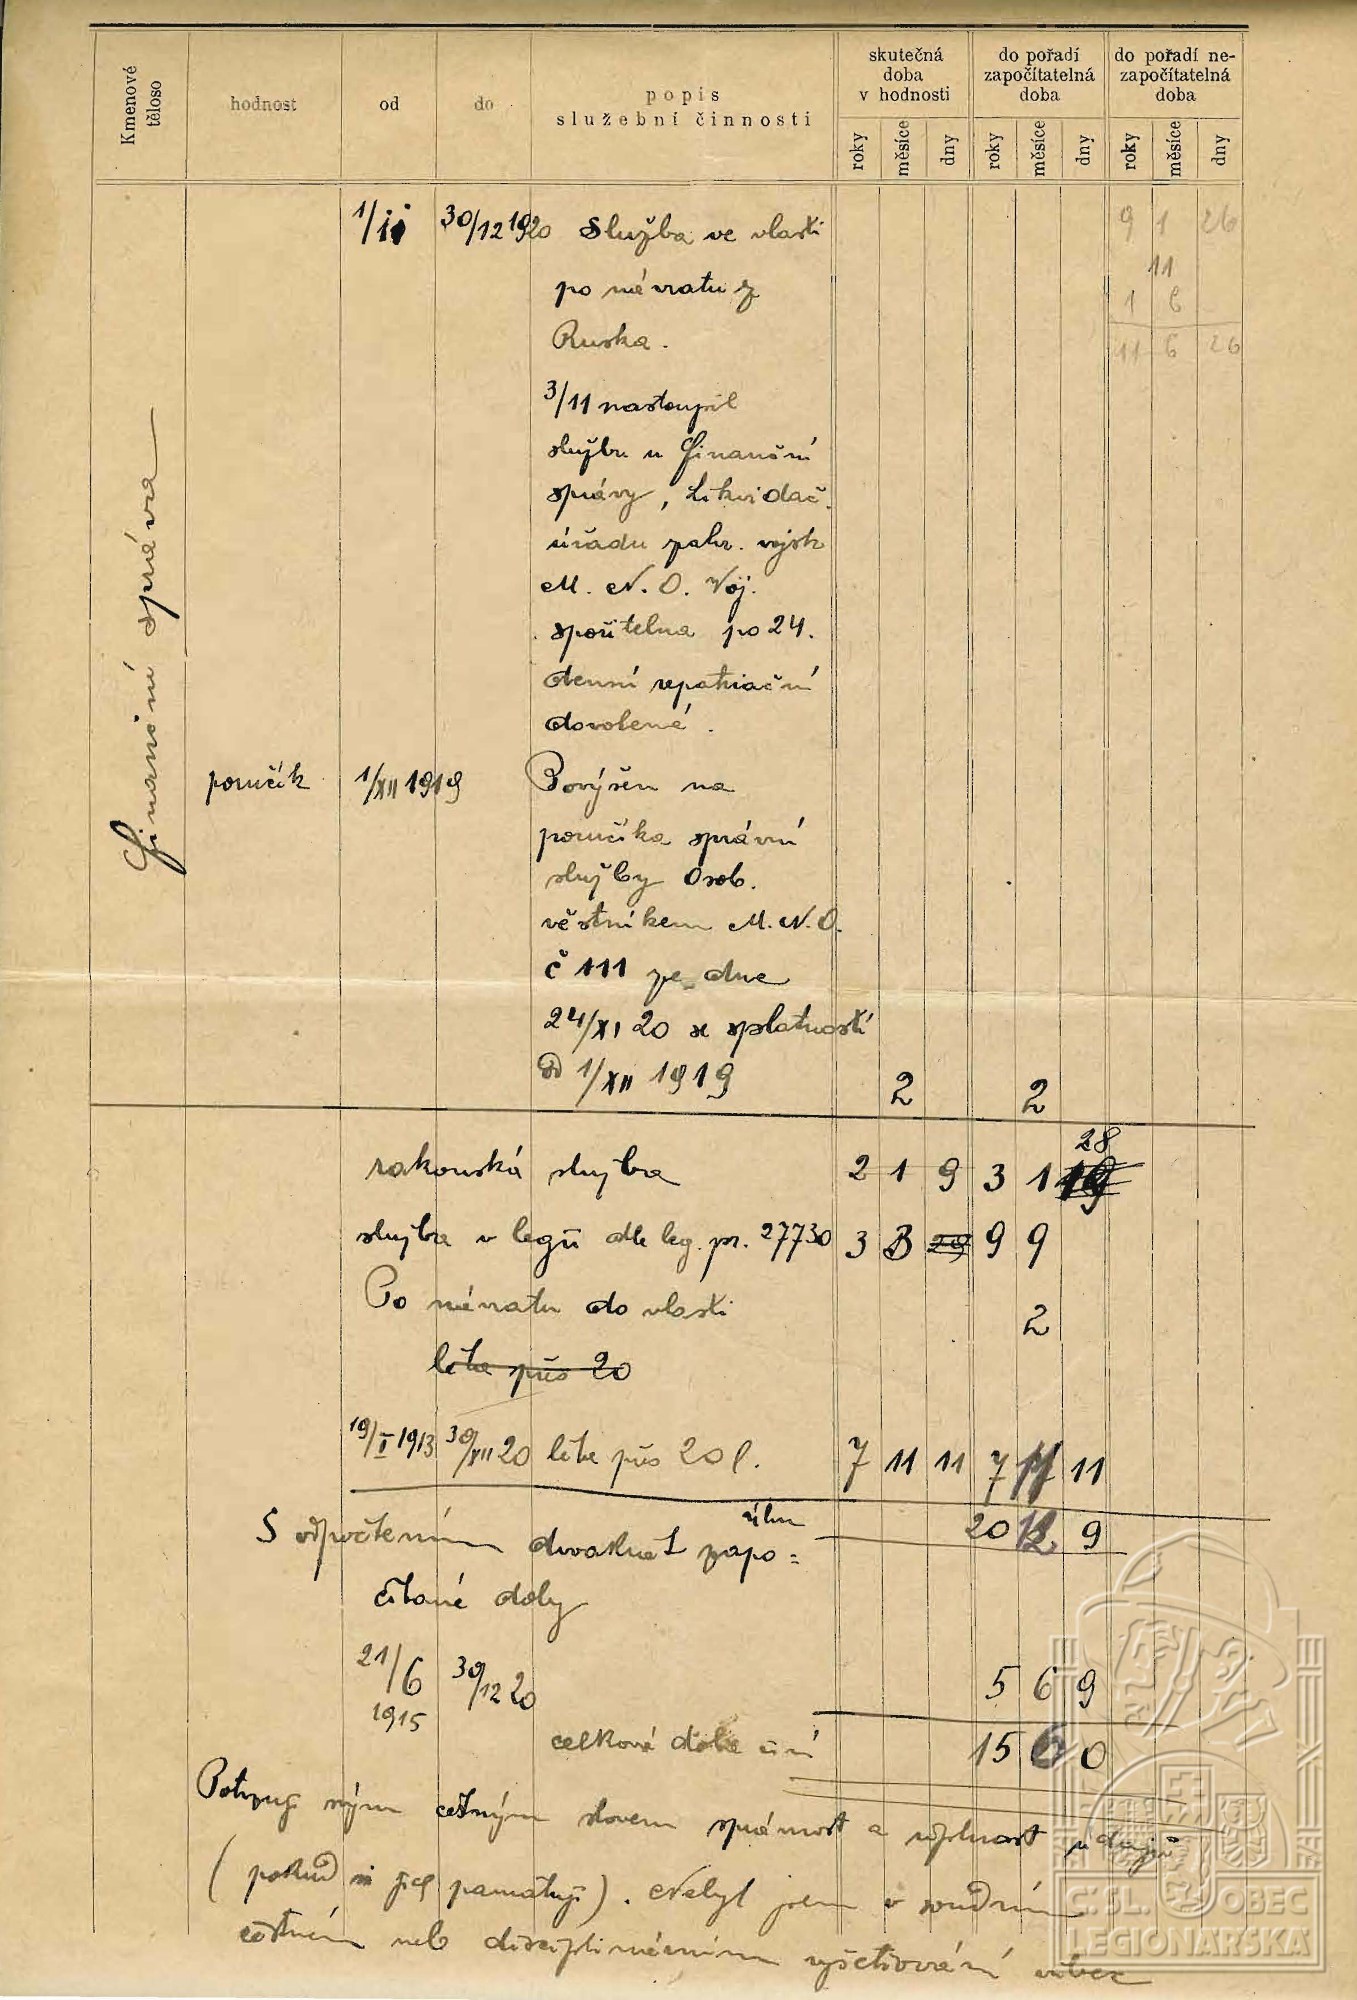 Kmenové těleso
hodnost
od
do
popis služební činnosti
skutečná doba v hodnosti
do pořadí započítatelná doba
do pořadí nezapočítatelná doba
roky měsíce dny roky měsíce dny roky měsíce dny
Finanční správa
1/11 30/12 1920 Služba ve vlasti 9 1 26
11
po návratu z 1 6
Ruska. 11 6 26
3/11 nastoupil
službu u finanční
správy, Likvidač.
úřadu zahr. vojsk
M. N. O. Voj.
spořitelna po 24.
denní repatriační
dovolené.
poručík 1/XII 1919 Povýšen na
poručíka správní
služby Osob.
věstníkem M.N.O.
č 111 ze dne
24/XI 20 se splatností
od 1/XII 1919 2 2
28
rakouská služba 2 1 9 3 1 19
služba v legii dle leg. pr. 27730 3 8 29 9 9
Po návratu do vlasti 2
léta přes 20
19/I 1913 30/XII 20 léta přes 20 l. 7 11 11 7 11 11
úhrn 20 9
S odpočtením dvakrát zapo=
čítané doby
21/6 1915 30/12 20 5 6 9
celková doba činí 15 6 0
Potvrzuji svým čestným slovem správnost a úplnost údajů
(pokud si jich pamatuji). Nebyl jsem v soudním
čestném neb disciplinárním vyšetřování vůbec
Č.SL. OBEC
LEGIONÁŘSKÁ